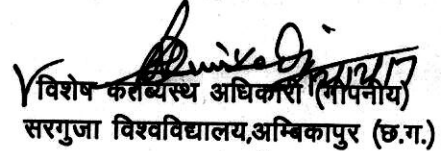 विशेष कर्तव्यस्थ अधिकारी (गोपनीय)
सरगुजा विश्वविद्यालय,अम्बिकापुर (छ.ग.)